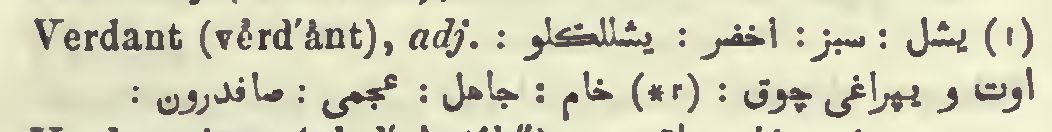 Verdant (vẻrd'ånt), adj. (١) يشل : سبز : اخضر : يشللكلو :
اوت و يپراغی چوق : (٢*) خام : جاهل : عجمی : صافدرون :